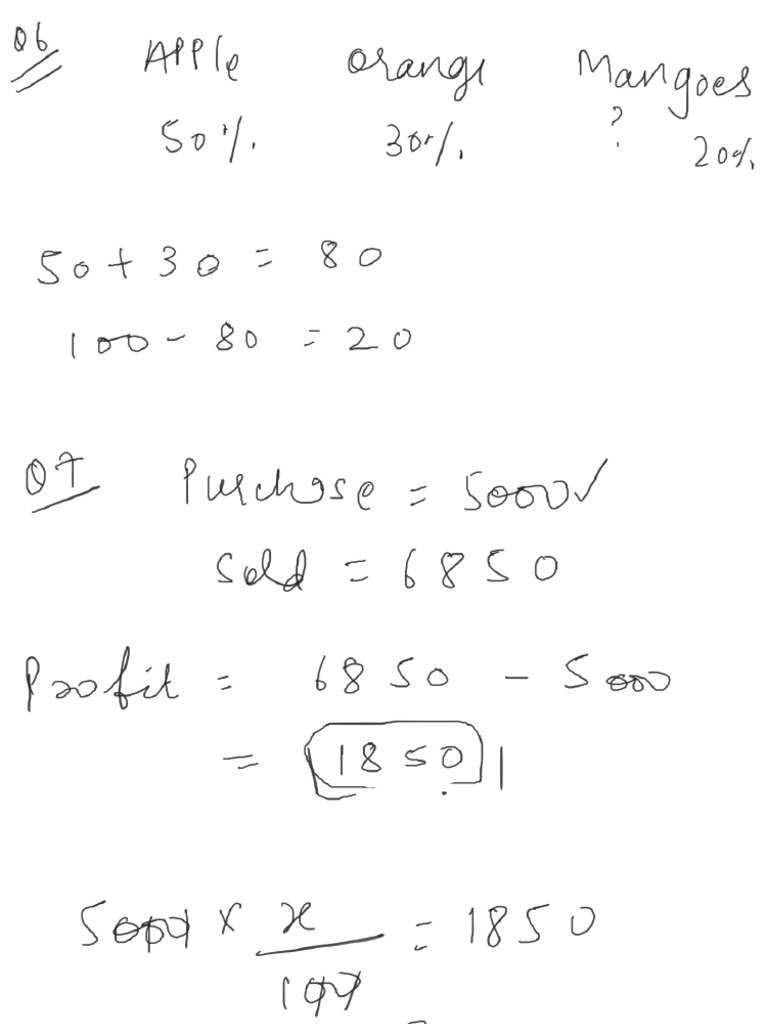 Q6 Apple Orange Mangoes
50% 30% ? 20%
50 + 30 = 80
100 - 80 = 20
Q7 Purchase = 5000✓
Sold = 6850
Profit = 6850 - 5000
= 1850
5000 × x/100 = 1850